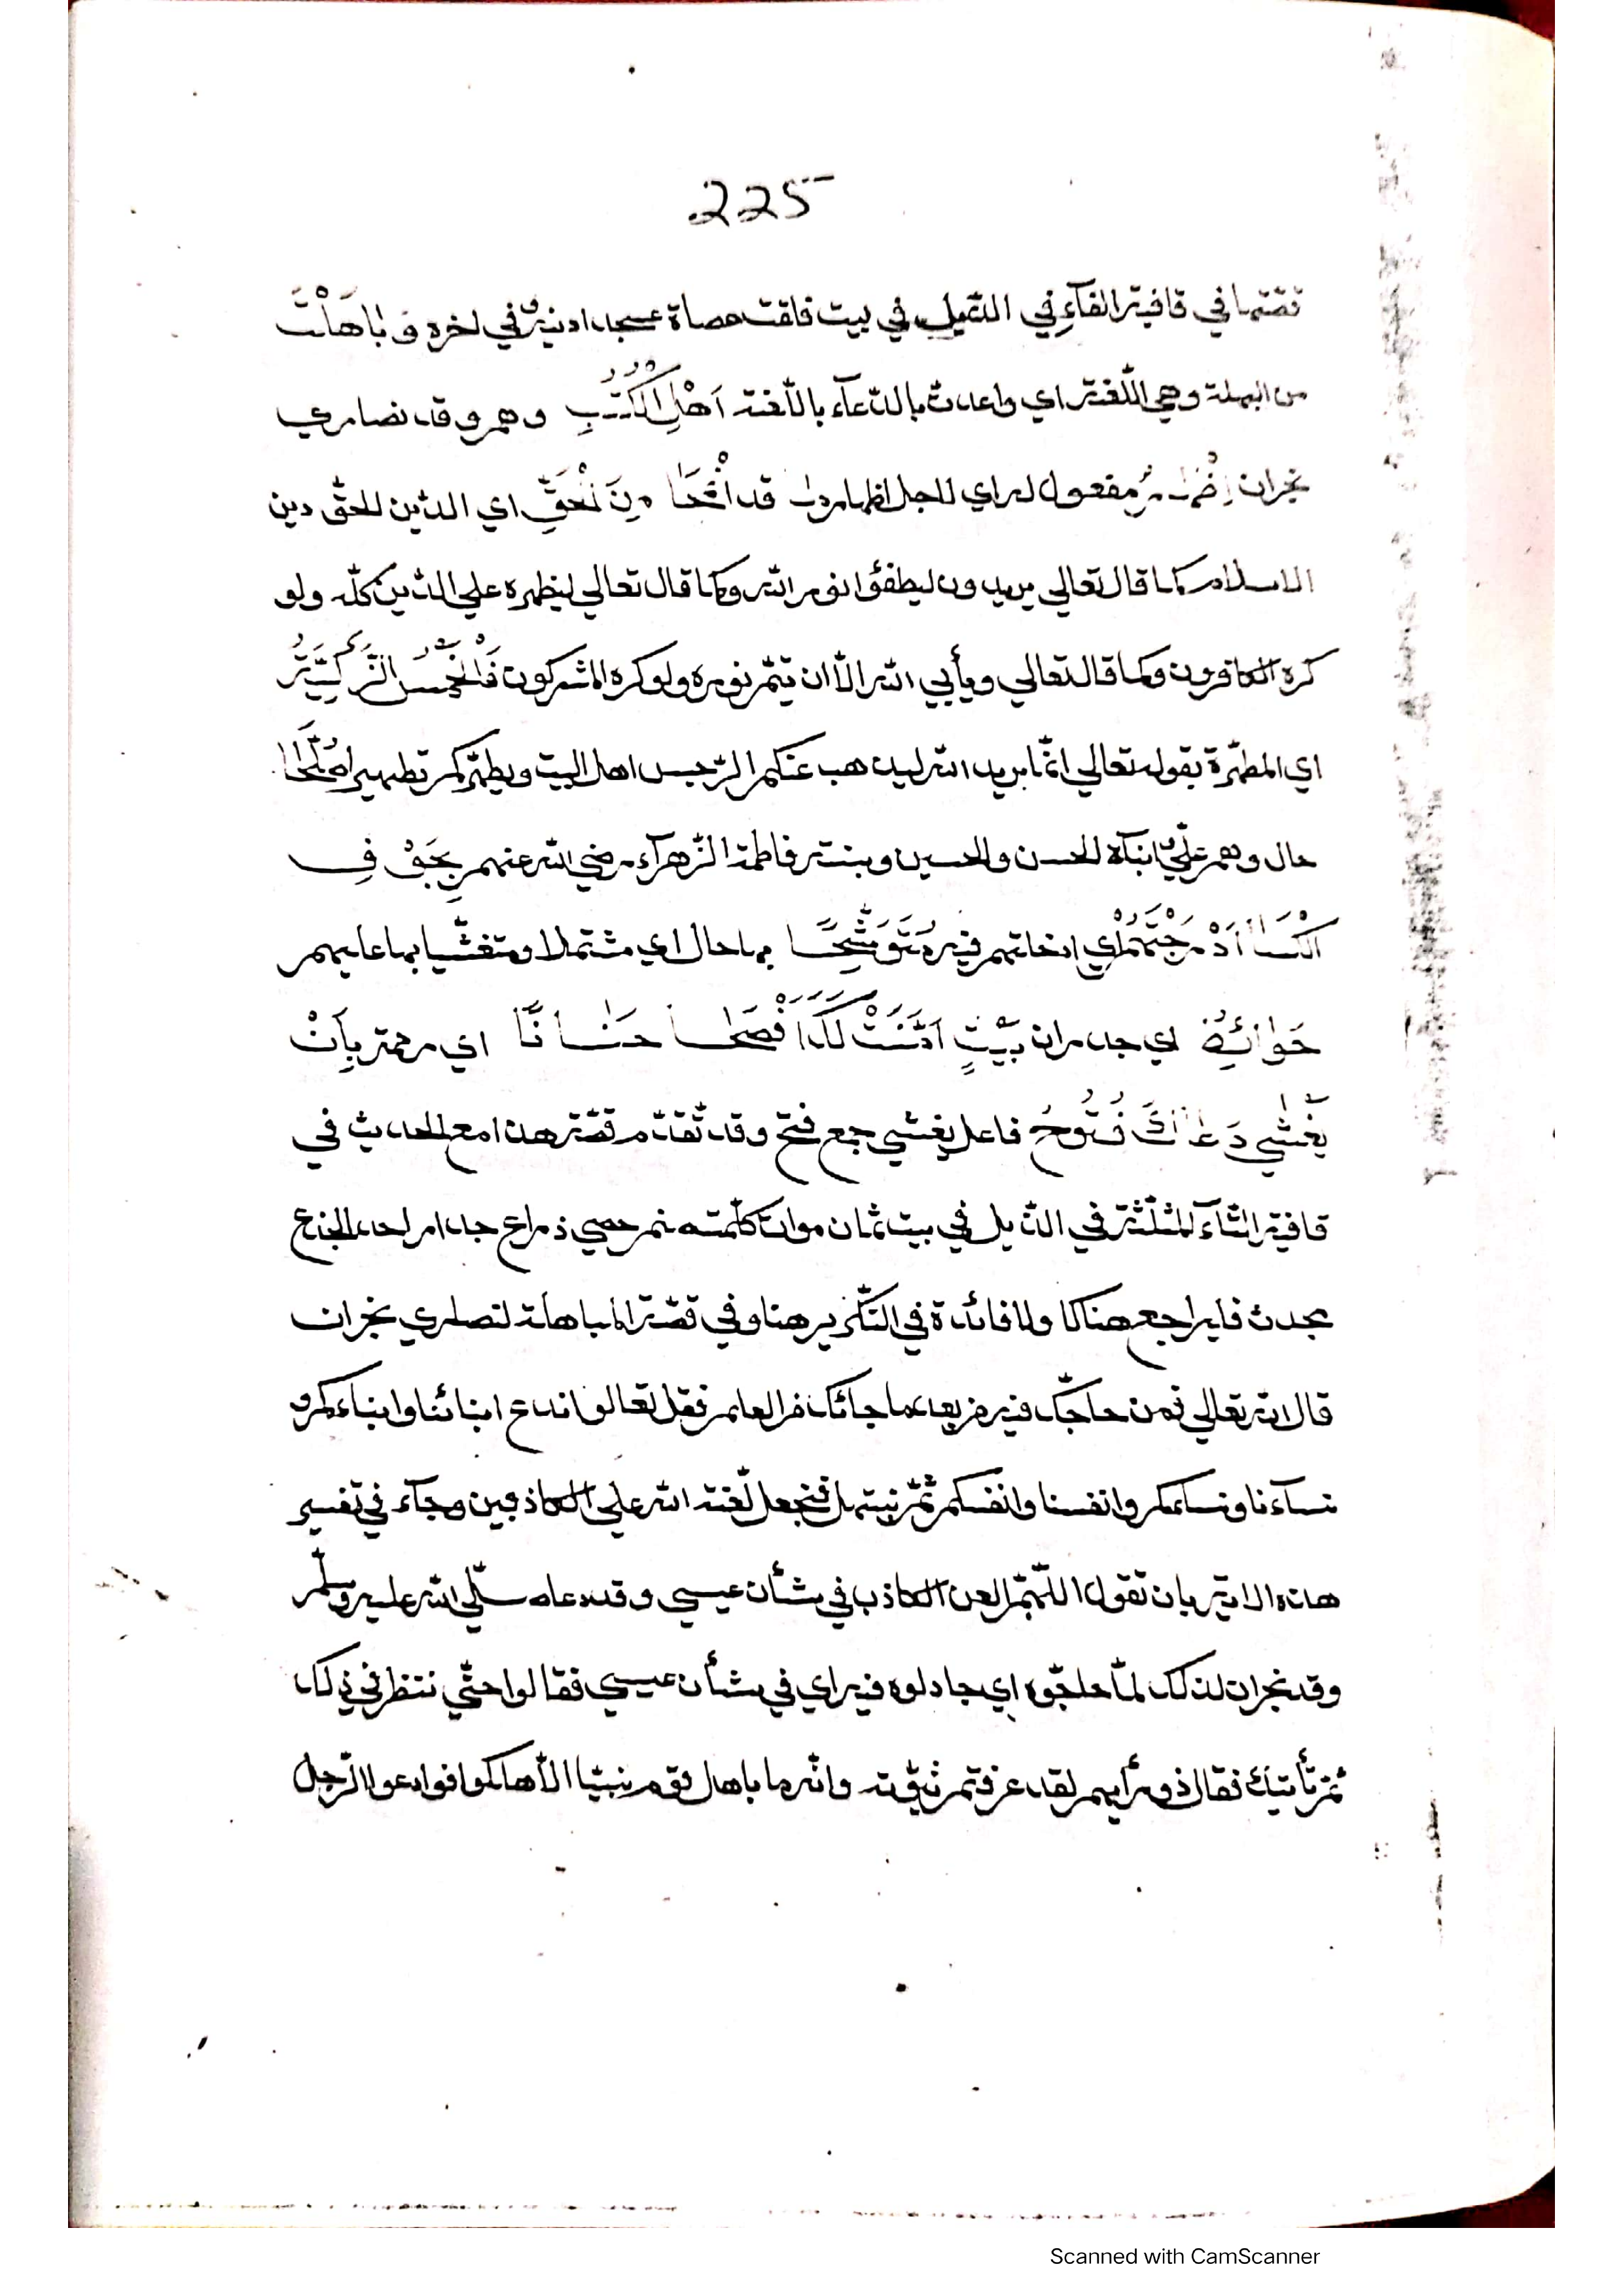 225
قصتها في قافية الفآء في الذيل في بيت فاقت حصاة عسجد في اخره و باهلت
من البهلة وهي اللّعنة اي واعدت بالدّعآء باللّعنة اَهْلَ الْكُتُبِ وهم وفد نصاري
نجران مفعول له اي لاجل اظهار قد مِنَ الْحَقِّ اي الدّين الحقّ دين
الاسلام كما قال تعالي يريدون ليطفؤا نور الله وكما قال تعالي ليظهره علي الدّين كلّه ولو
كره الكافرون وكما قال تعالي ويأبي الله الّا ان يتمّ نوره ولو كره المشركون
اي المطهّرة بقوله تعالي انّما يريد الله ليذهب عنكم الرّجس اهل البيت ويطهّركم تطهيرا
حال وهم عليّ وابنآه الحسن والحسين وبنته فاطمة الزّهرآء رضي الله عنهم فِي
اي ادخلتهم فيه مُتَوَشِّحًا بها حال اي مشتملا ومتغشّيا بها عليهم
حَوَائِطُ اي جدران بَيْتٍ اَمَّنَتْ لَكَ حَنَانًا اي رحمة بِاَنْ
يَغْشٰي دَعَاكَ فُتُوحُ فاعل يغشي جمع فتح وقد تقدّم قصّة هذا مع الحديث في
قافية الثآء المثلّثة في الذيل في بيت ثمان موات كلّمته حصي ذراع جدار احد الجذع
يحدث فليراجع هناك ولا فائدة في التّكرير هنا وفي قصّة المباهلة لنصاري نجران
قال الله تعالي فمن حاجّك فيه من بعد ما جائك من العلم فقل تعالوا ندع ابنائنا وابناءكم و
نسآءنا ونساءكم وانفسنا وانفسكم ثمّ نبتهل فنجعل لّعنة الله علي الكاذبين وجآء في تفسير
هذه الاية بان نقول اللّهمّ العن الكاذب في شأن عيسي وقد دعاه صلّي الله عليه وسلّم
وفد نجران لذلك لمّا حاجّوه اي جادلوه فيه اي في شأن عيسي فقالوا حتّي ننظر في ذلك
ثمّ نأتيك فقال ذو رأيهم لقد عرفتم نبوّته وانّه ما باهل قوم نبيّا الّا هلكوا فوادعوا الرّجل
Scanned with CamScanner